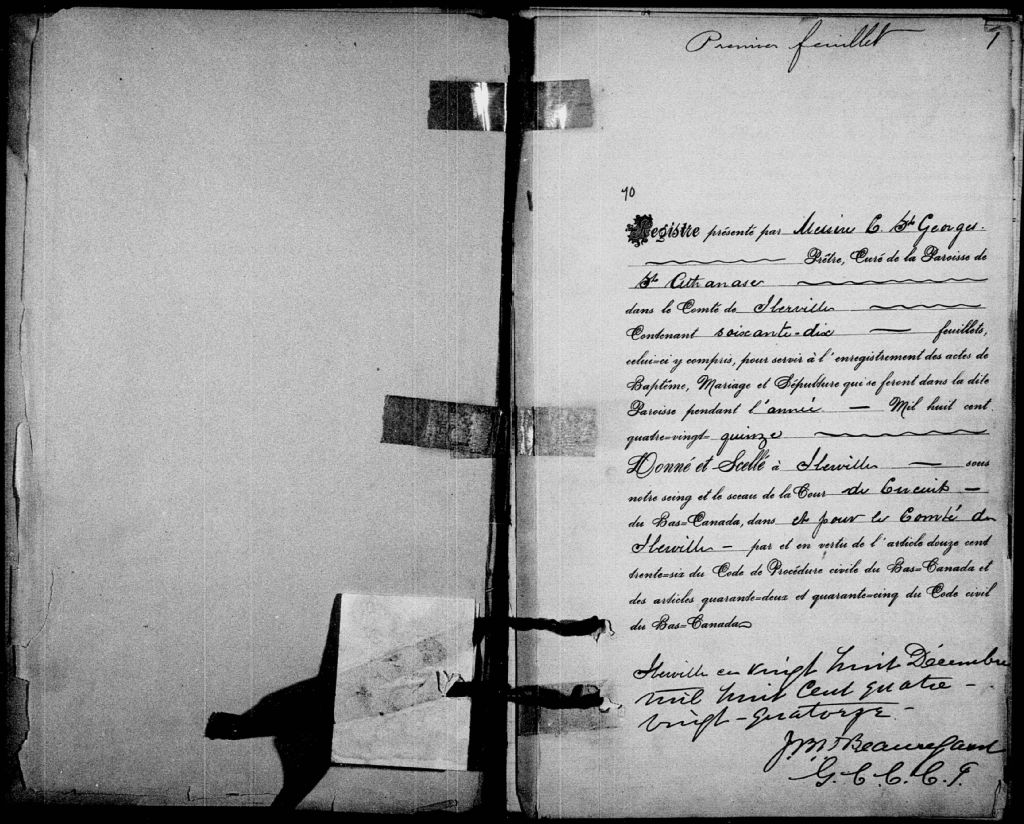 Premier feuillet 1
70
Registre présenté par Messire C. St Georges.
Prêtre, Curé de la Paroisse de
St Athanase
dans le Comté de Iberville
Contenant soixante-dix feuillets,
celui-ci y compris, pour servir à l'enregistrement des actes de
Baptême, Mariage et Sépulture qui se feront dans la dite
Paroisse pendant l'année — Mil huit cent
quatre-vingt- quinze
Donné et Scellé à Iberville — sous
notre seing et le sceau de la Cour de Circuit —
du Bas-Canada, dans et pour le Comté de
Iberville — par et en vertu de l'article douze cent
trente-six du Code de Procédure civile du Bas-Canada et
des articles quarante-deux et quarante-cinq du Code civil
du Bas-Canada
Iberville ce vingt huit Décembre
mil huit cent quatre-
vingt-quatorze.
Beauregard
G. C. C. C. I.